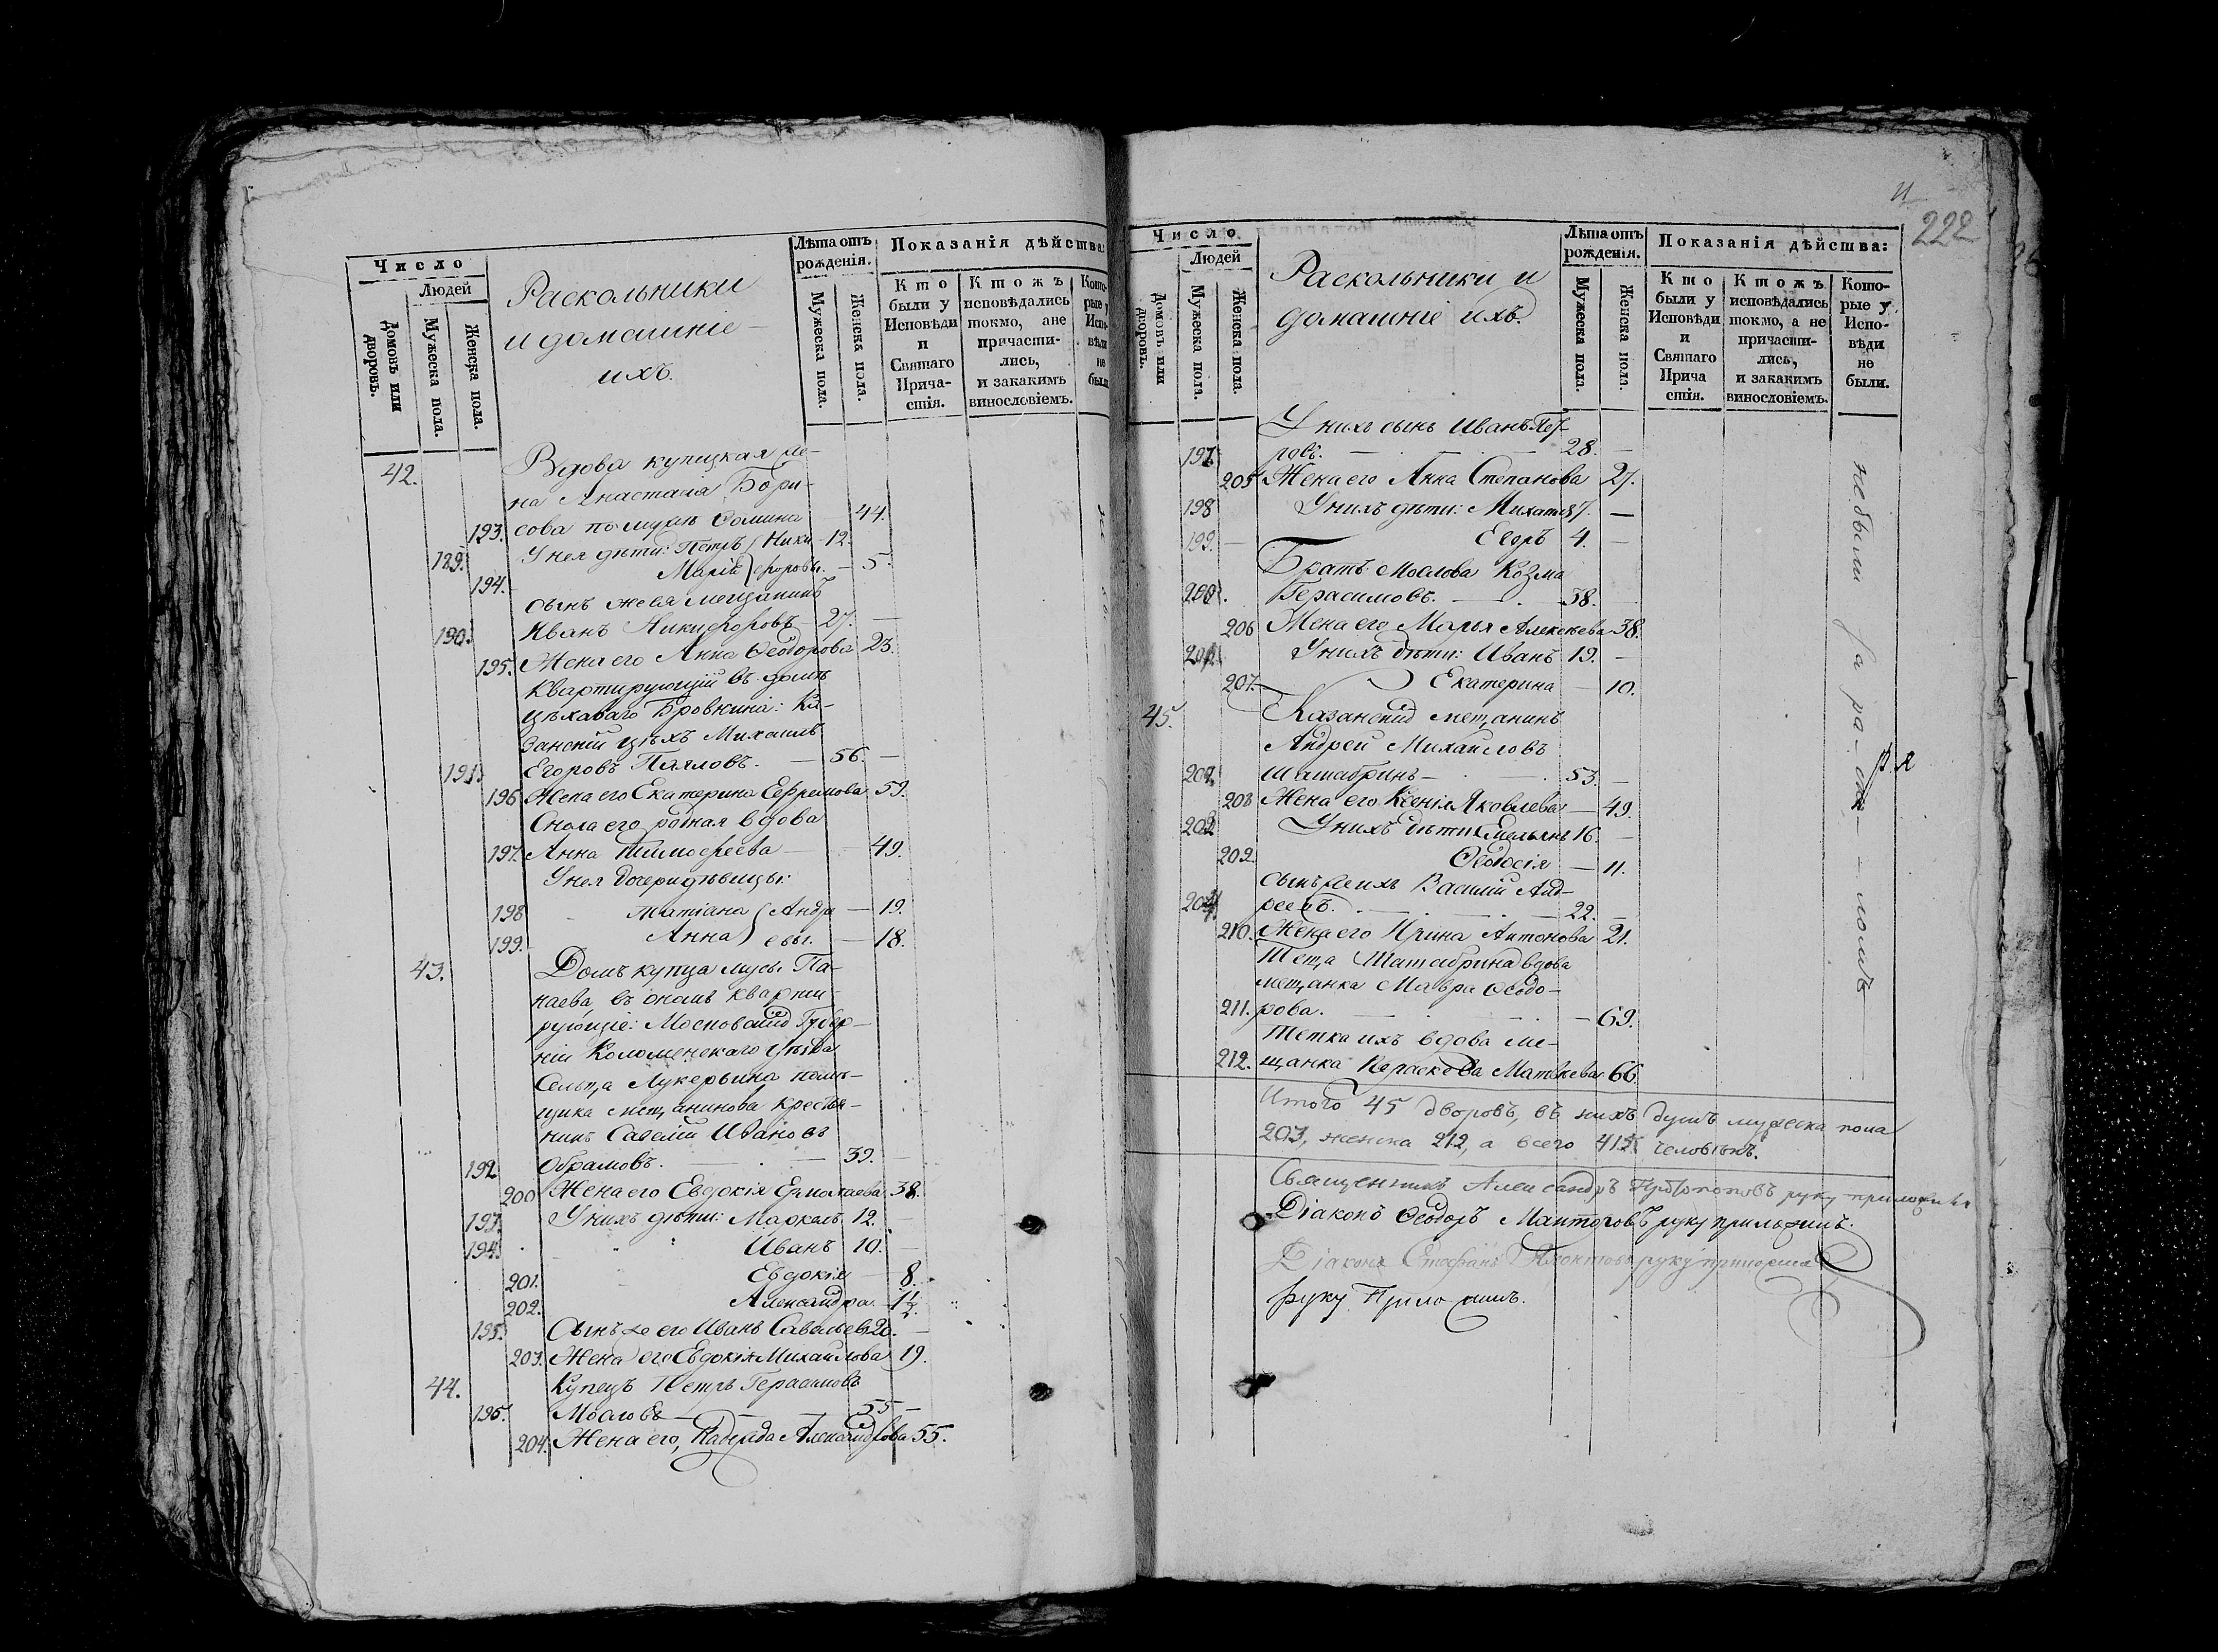 Число
Людей
Домовъ или дворовъ.
Мужеска пола.
Женска пола.
Раскольники
и домашніе
ихъ.
Лѣта отъ рожденія.
Мужеска пола.
Женска пола.
Показанія дѣйства:
Кто были у Исповѣди и Святаго Прича-стія.
Ктожъ исповѣдались токмо, ане причасти-лись, и закакимъ винословіемъ.
Кото-рые у Испо-вѣди не были
42. Вдова купецкая же-
на Анастасія Бори-
193. сова по мужѣ Фомина 44.
189. У нея дѣти: Петръ Ники- 12.
194. Марія форовы. 5.
Сынъ же ея мещанинъ
190. Иванъ Никифоровъ 27.
195. Жена его Анна Ѳеодорова 23.
Квартирующій въ домѣ
цѣховаго Бровкина: Ка-
занскій цѣхъ Михаилъ
191. Егоровъ Паяловъ. 56.
196 Жена его Екатерина Ефремова 59.
Сноха его родная вдова
197. Анна Тимофеева 49.
У нея дочери дѣвицы:
198 Татіана Андре 19.
199. Анна евы. 18.
43. Домъ купца Мусы Па-
наева, въ ономъ кварти-
рующіе: Московской Губер-
ніи Коломенскаго уѣзда
Сельца Лукерьина помѣ-
щика Мещанинова крестья-
нинъ Савелій Ивановъ
192 Обрамовъ. 39.
200 Жена его Евдокія Ермолаева 38.
193. У нихъ дѣти: Маркелъ 12.
194. Иванъ 10.
201. Евдокія 8.
202. Александра 1½.
195. Сынъ же его Иванъ Савельевъ 20.
203. Жена его Евдокія Михайлова 19.
44. Купецъ Петръ Герасимовъ
196. Мословъ 55
204. Жена его, Надежда Александрова 55.
222
Число
Людей
Домовъ или дворовъ.
Мужеска пола.
Женска пола.
Раскольники и
домашніе ихъ.
Лѣта отъ рожденія.
Мужеска пола.
Женска пола.
Показанія дѣйства:
Кто были у Исповѣди и Святаго Прича стія.
Ктожъ исповѣдались токмо, а не причасти-лись, и закакимъ винословіемъ.
Кото-рые у Испо-вѣди не были.
У нихъ сынъ Иванъ Пет-
197. ровъ. 28.
205 Жена его Анна Степанова 27.
198 У нихъ дѣти: Михаилъ 7.
199. Егоръ 4.
Братъ Мослова Козма
200. Герасимовъ. 38.
206 Жена его Марья Алексѣева 38.
201 У нихъ дѣти: Иванъ 19.
207. Екатерина 10.
45. Казанскій мещанинъ
Андрей Михайловъ
202. Шатабринъ 53.
208 Жена его Ксенія Яковлева 49.
203 У нихъ дѣти: Емельянъ 16.
209. Ѳеодосія 11.
Сынъ же ихъ Василій Анд-
204. реевъ. 22.
210. Жена его Ирина Антонова 21.
Теща Шатабрина вдова
мещанка Мавра Ѳеодо-
211. рова. 69.
Тетка ихъ вдова ме-
212. щанка Параскева Матвеева 66.
не были за рас-ко-ломъ
Итого 45 дворовъ, въ нихъ душъ мужеска пола
203, женска 212, а всего 415 человѣкъ.
Священникъ Александръ Протопоповъ руку приложилъ
Діаконъ Ѳеодоръ руку приложилъ.
Діаконъ Стефанъ руку приложилъ
руку Приложилъ.